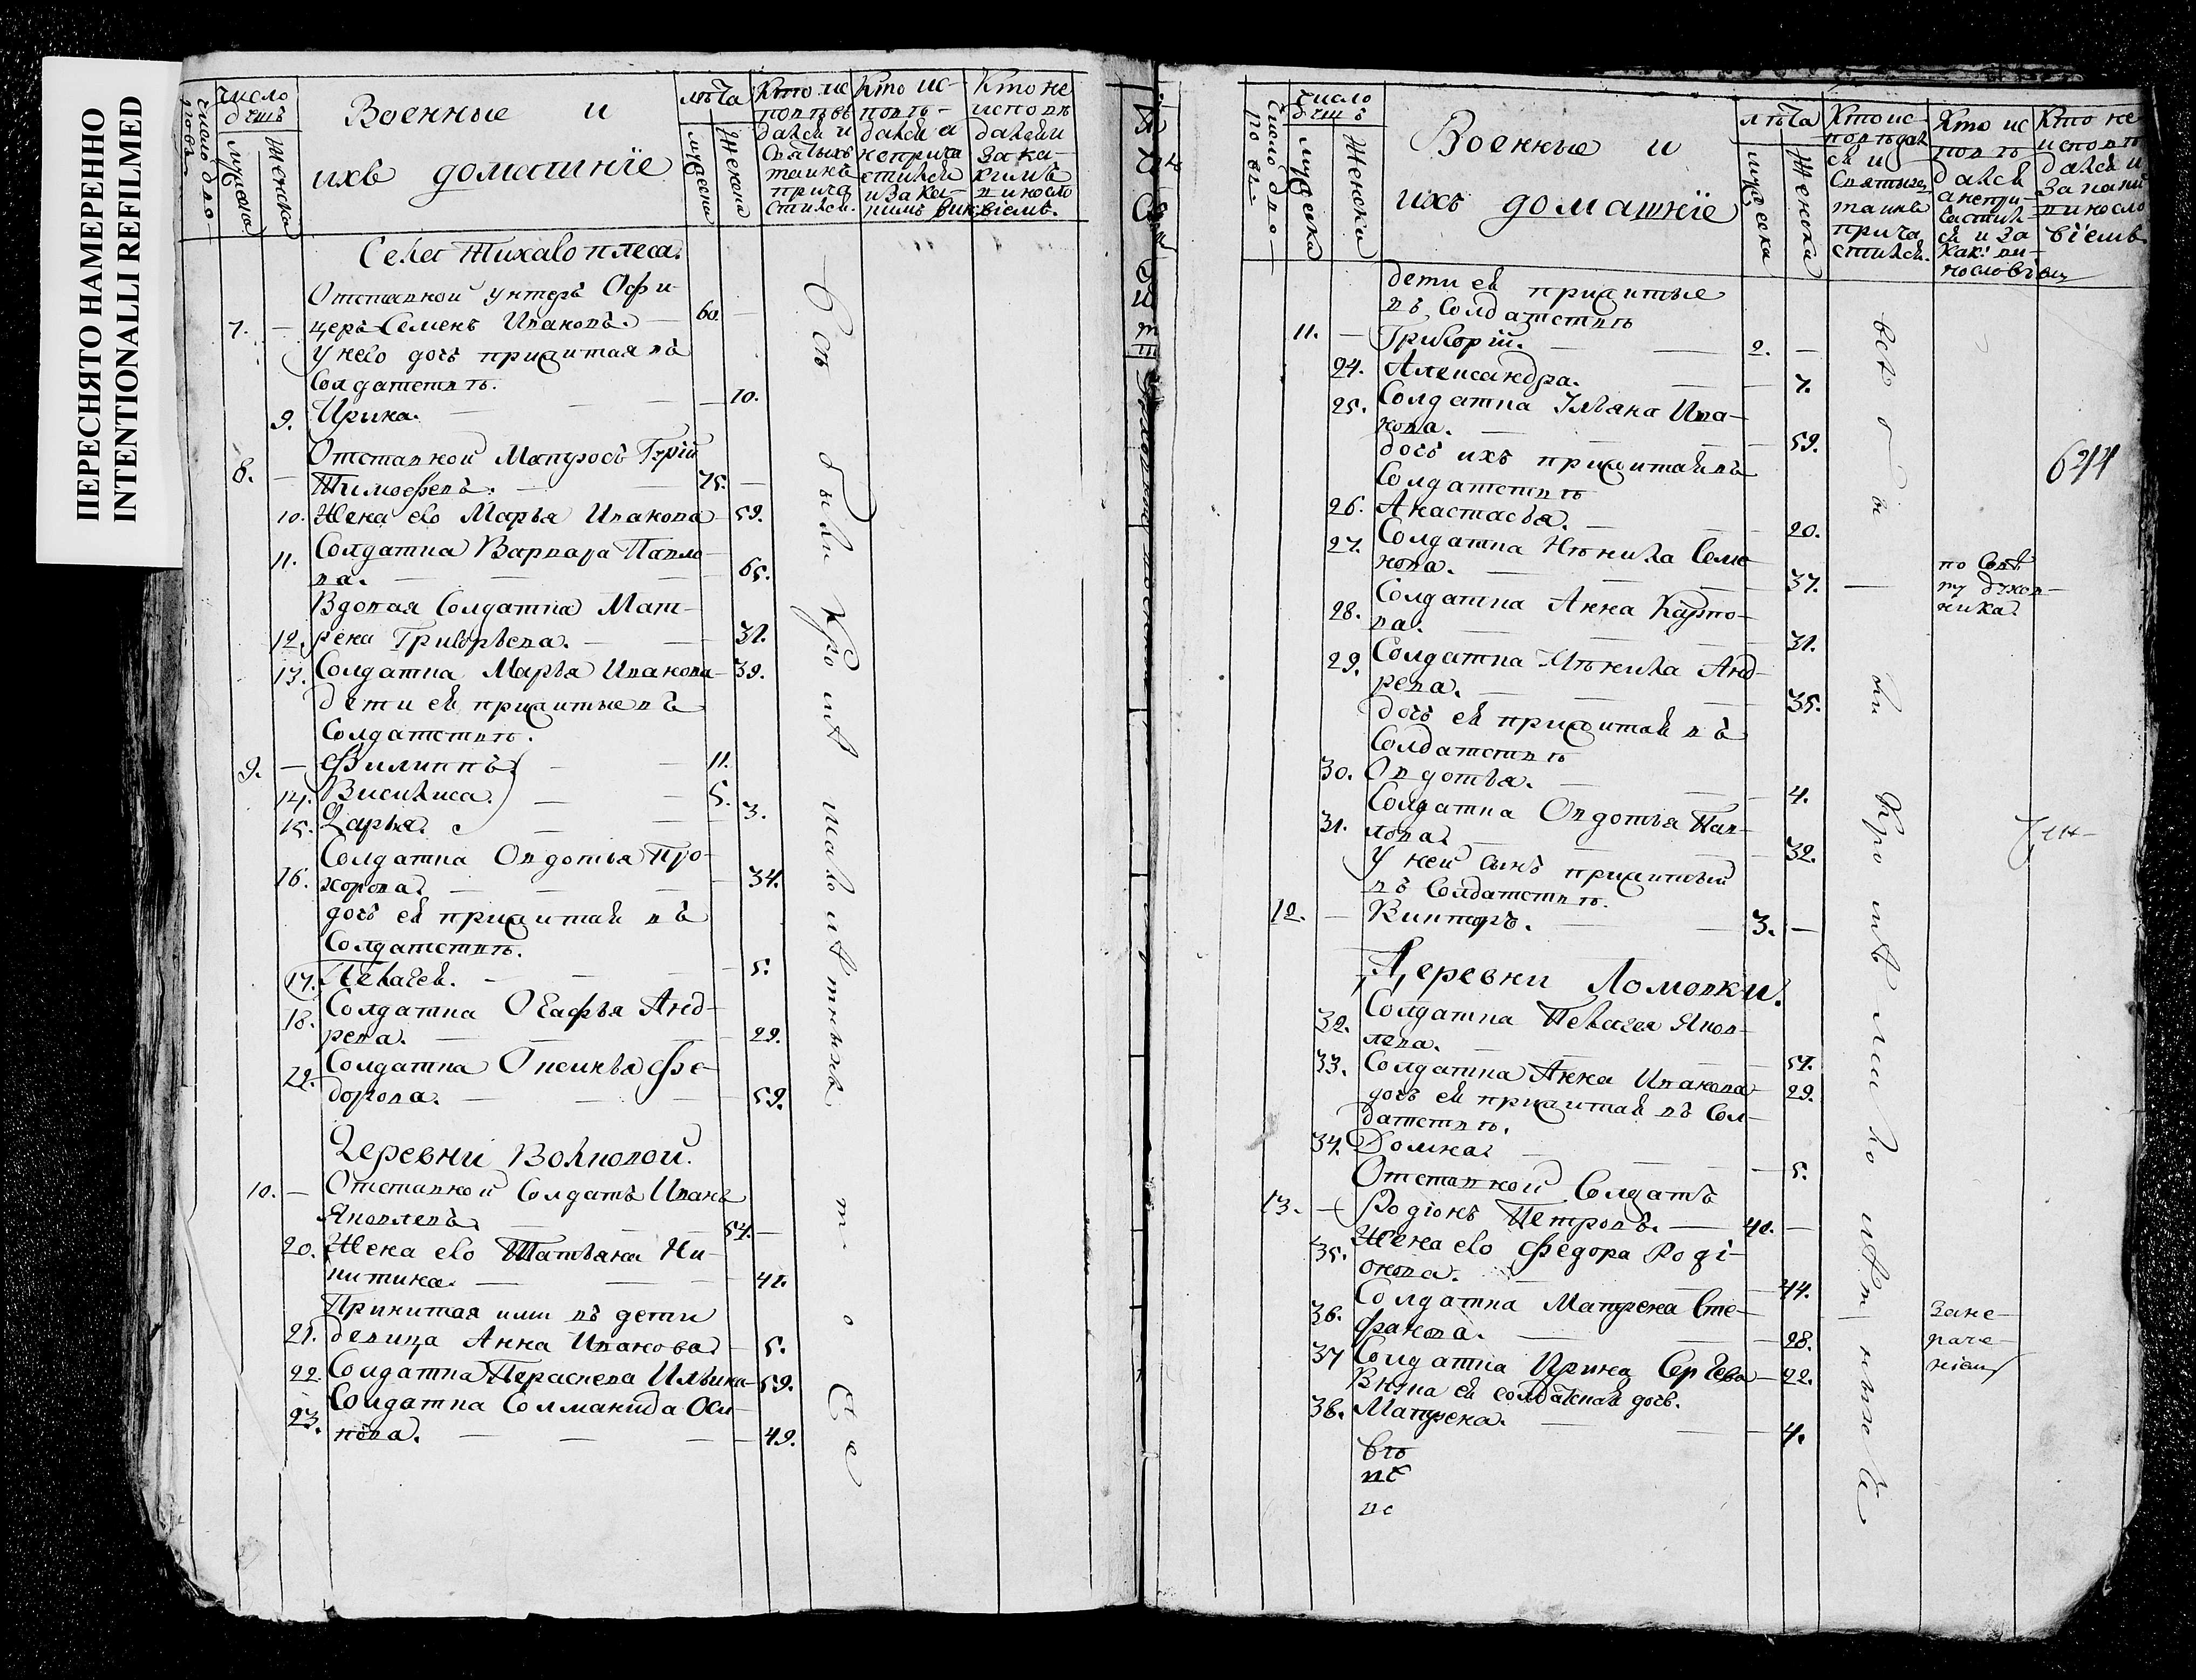 ПЕРЕСНЯТО НАМЕРЕННО
INTENTIONALLI REFILMED
число дворовъ
число душъ
мужеска
женска
Военные и
ихъ домашнїе
лѣта
мужеска
женска
Кто ис
повѣ
дался и
Святыхъ
таинъ
прича
стился.
Кто ис-
повѣ-
дался а
неприча
стился
и за ка-
кимъ вин
Кто не
исповѣ
дался и
за ка-
кимъ
виносло
вїемъ.
Села Тихаво плеса.
Отставной унтеръ Офи-
7. — церъ Семенъ Ивановъ. — 60. —
у него дочь прижитая въ
Солдатствѣ.
9. Ирина. — — 10.
Отставной Матросъ Гурїй
8. — Тимофеевъ. — 75. —
10. Жена ево Марья Иванова — 59.
Солдатка Варвара Павло
11. ва. — — 65.
Вдовая Солдатка Мат-
12. рена Григорьева. — 31.
13. Солдатка Марья Иванова — 39.
дети ея прижитые въ
Солдатствѣ.
9. — Филиппъ — 11.
14. Василиса. — 5.
15. Дарья. — 3.
Солдатка Овдотья Про-
16. хорова — 34.
дочь ея прижитая въ
Солдатствѣ.
17. Пелагея. — 5.
18. Солдатка Огафья Анд-
реева. — 29.
Солдатка Оксинья Фе-
дорова. — 59.
Деревни Волковой.
10. — Отставной Солдатъ Иванъ
Яковлевъ — 54. —
20. Жена ево Татьяна Ни-
китина. — 41.
Принятая ими въ дети
21. девица Анна Иванова — 5.
22. Солдатка Парасковья Ильина — 59.
Солдатка Соломанида Оси-
23. пова. — 49.
Всѣ были кромѣ малолѣтныхъ тоже
число дворовъ
число душъ
мужеска
женска
Военные и
ихъ домашнїе
лѣта
мужеска
женска
Кто ис-
повѣдал
ся и
Святыхъ
таинъ
прича
стился.
Кто ис
повѣ
дался
а непри-
частил
ся и за
каки ви-
нословїем
Кто не
исповѣ
дался и
за каким
виносло
вїемъ.
дети ея прижитые
въ Солдатствѣ
11. — Григорїй. — 2. —
24. Александра. — 7.
25. Солдатка Ульяна Ива-
нова. — 59.
дочь ихъ прижитая въ
Солдатствѣ
26. Анастасья. — 20.
27. Солдатка Неннила Семе
нова. — 37. — по Совѣ
ту духов-
ника
28. Солдатка Анна Карпо-
ва. — 31.
29. Солдатка Неннила Анд-
реева. — 35.
дочь ея прижитая въ
Солдатствѣ
30. Овдотья. — 4.
Солдатка Овдотья Пав-
31. лова — 32.
У неи сынъ прижитый
въ Солдатствѣ.
12. — Викторъ. — 3. —
644
Деревни Ломовки.
Солдатка Пелагея Яков-
32. лева. — 51.
33. Солдатка Анна Иванова — 29.
дочь ея прижитая въ Сол-
датствѣ.
34. Домна — 5.
Отставной Солдатъ
13. — Родїонъ Петровъ. — 40. —
35. Жена ево Федора Родї-
онова. — 44.
36. Солдатка Матрена Сте-
фанова. — 28. — за не-
раче-
нїем
37 Солдатка Ирина Сергѣева — 22.
Внука ея солдатская дочь.
38. Матрена. — 4.
всѣ были кромѣ малолѣтныхъ